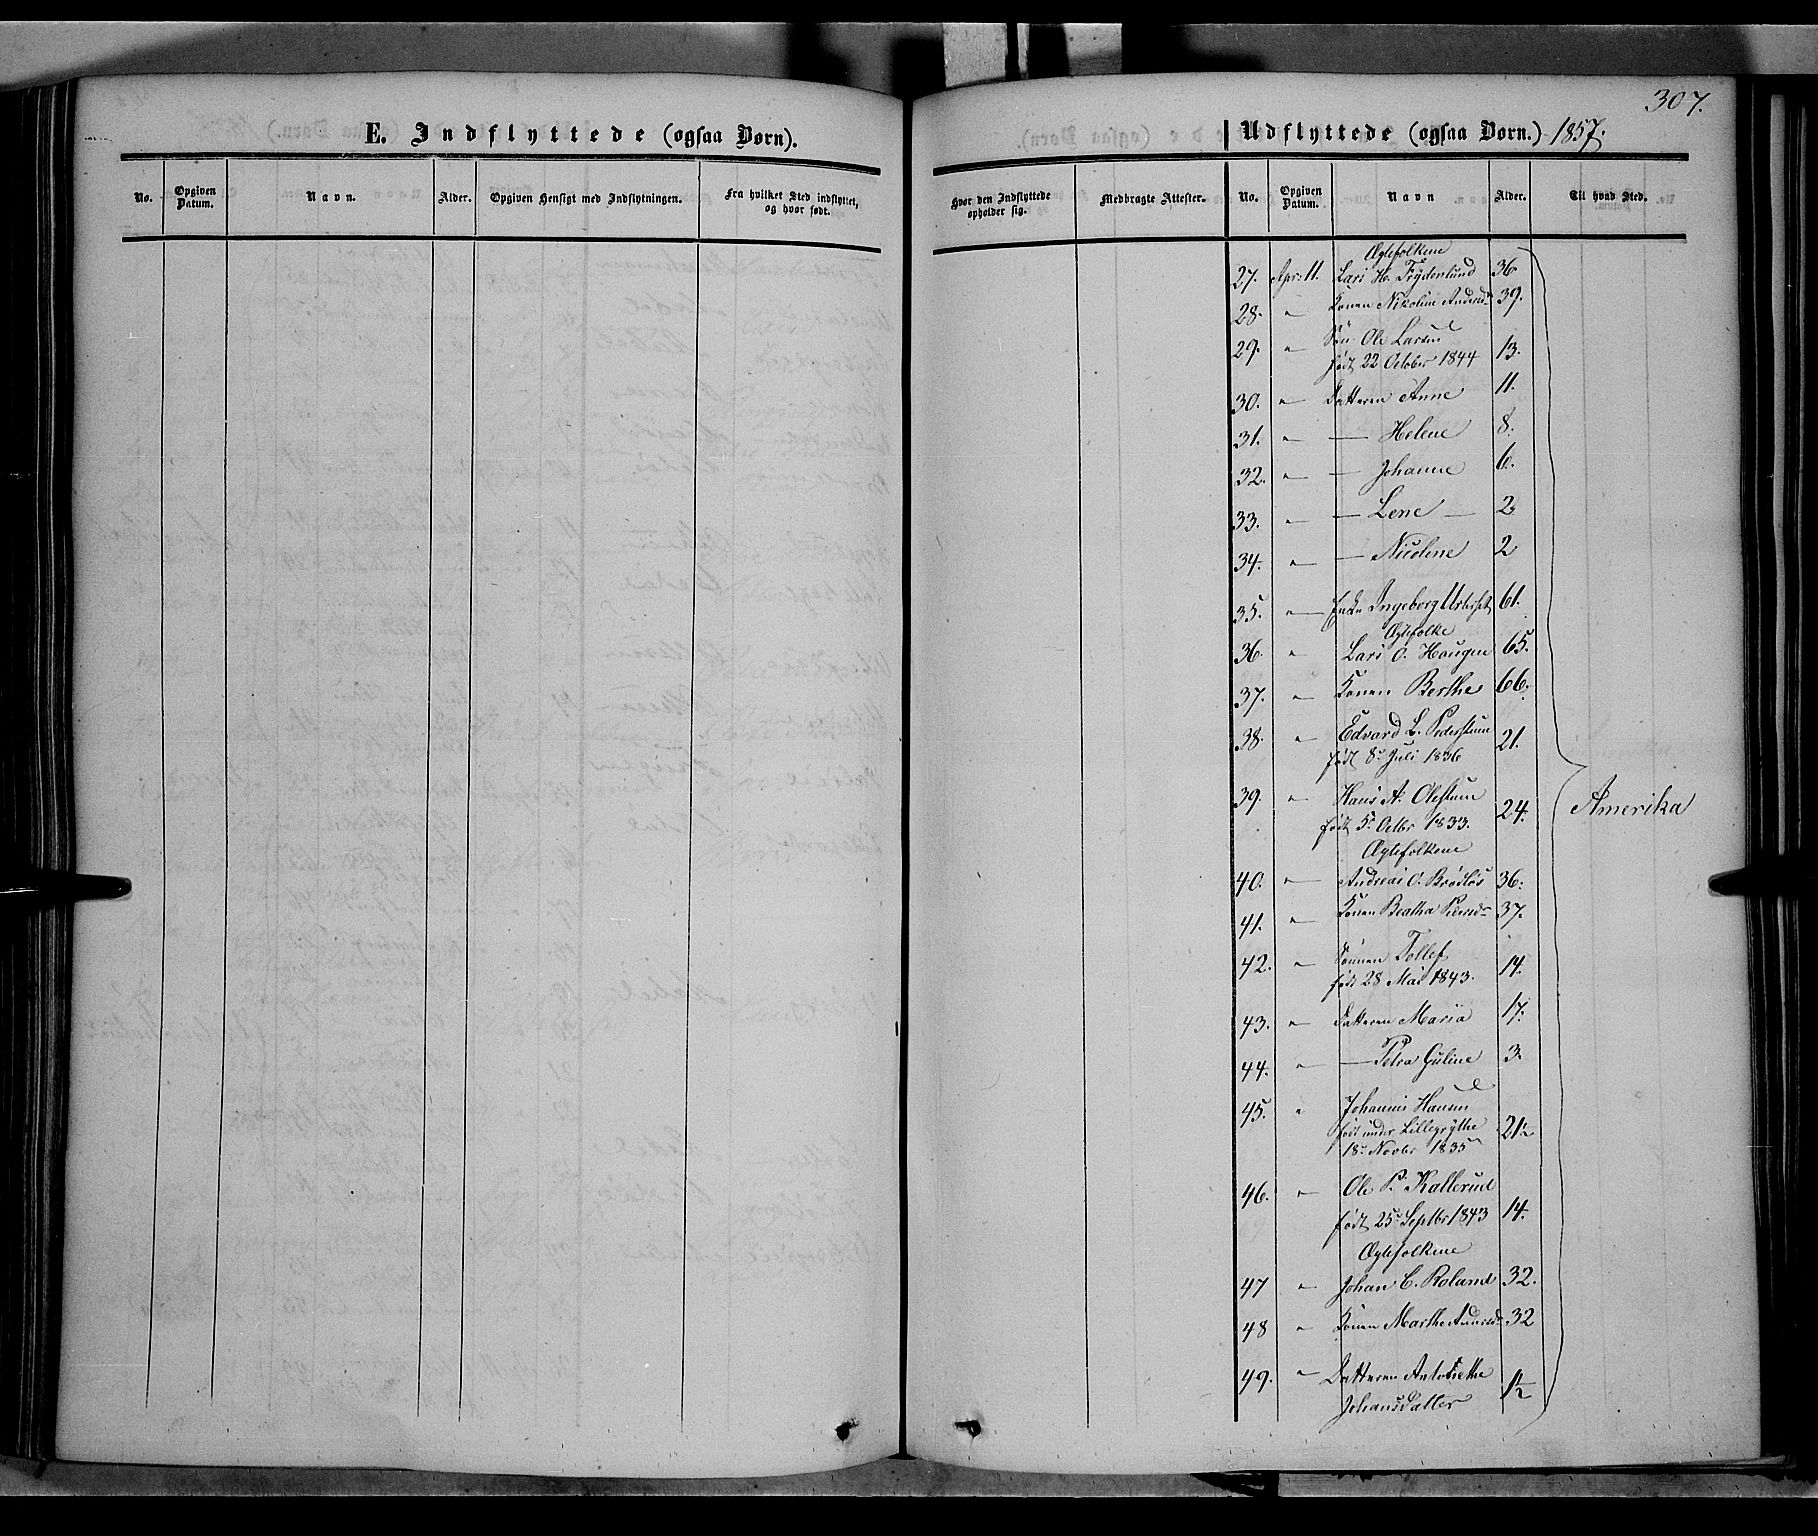 307.
E. Indflyttede (ogsaa Børn).
Udflyttede (ogsaa Børn.) 1857.
No. Opgiven Datum. Navn. Alder. Opgiven Hensigt med Indflytningen. Fra hvilket Sted indflyttet, og hvor født.
Hvor den Indflyttede opholder sig. Medbragte Attester. No. Opgiven Datum. Navn Alder. Til hvad Sted.
Ægtefolkene
27. Apr. 11. Lars H. Frydenlund 36
28. " Konen Nikoline Andersd 39.
29. " Søn Ole Larsen 13.
født 22 October 1844
30. " Datteren Anne 11.
31. " — Helene 8.
32. " — Johanne 6.
33. " — Lene — 2
34. " — Nicoline 2
35. " Enke Ingeborg 61.
Ægtefolke
36. " Lars O. Haugen 65.
37. " Konen Berthe 66.
38. " Edvard L. Pederstuen 21.
født 8 Juli 1836
39. " Hans A. Olestuen 24.
født 5 Octbr 1833.
Amerika
Ægtefolkene
40. " Andreas O. Brødløs 36.
41. " Konen Beatha Pedersd 37.
42. " Sønnen Tollef 14.
født 28 Mai 1843.
43. " Datteren Maria 17.
44. " — Petra Guline 3.
45. " Johannes Hansen
født under Lillegrythe 21½
18 Novbr 1835
46. " Ole P. Kallerud
født 25 Septbr 1843 14.
Ægtefolkene
47 " Johan C. Roland 32.
48 " Konen Marthe 32
49. " Datteren Antonethe
Johansdatter 1½